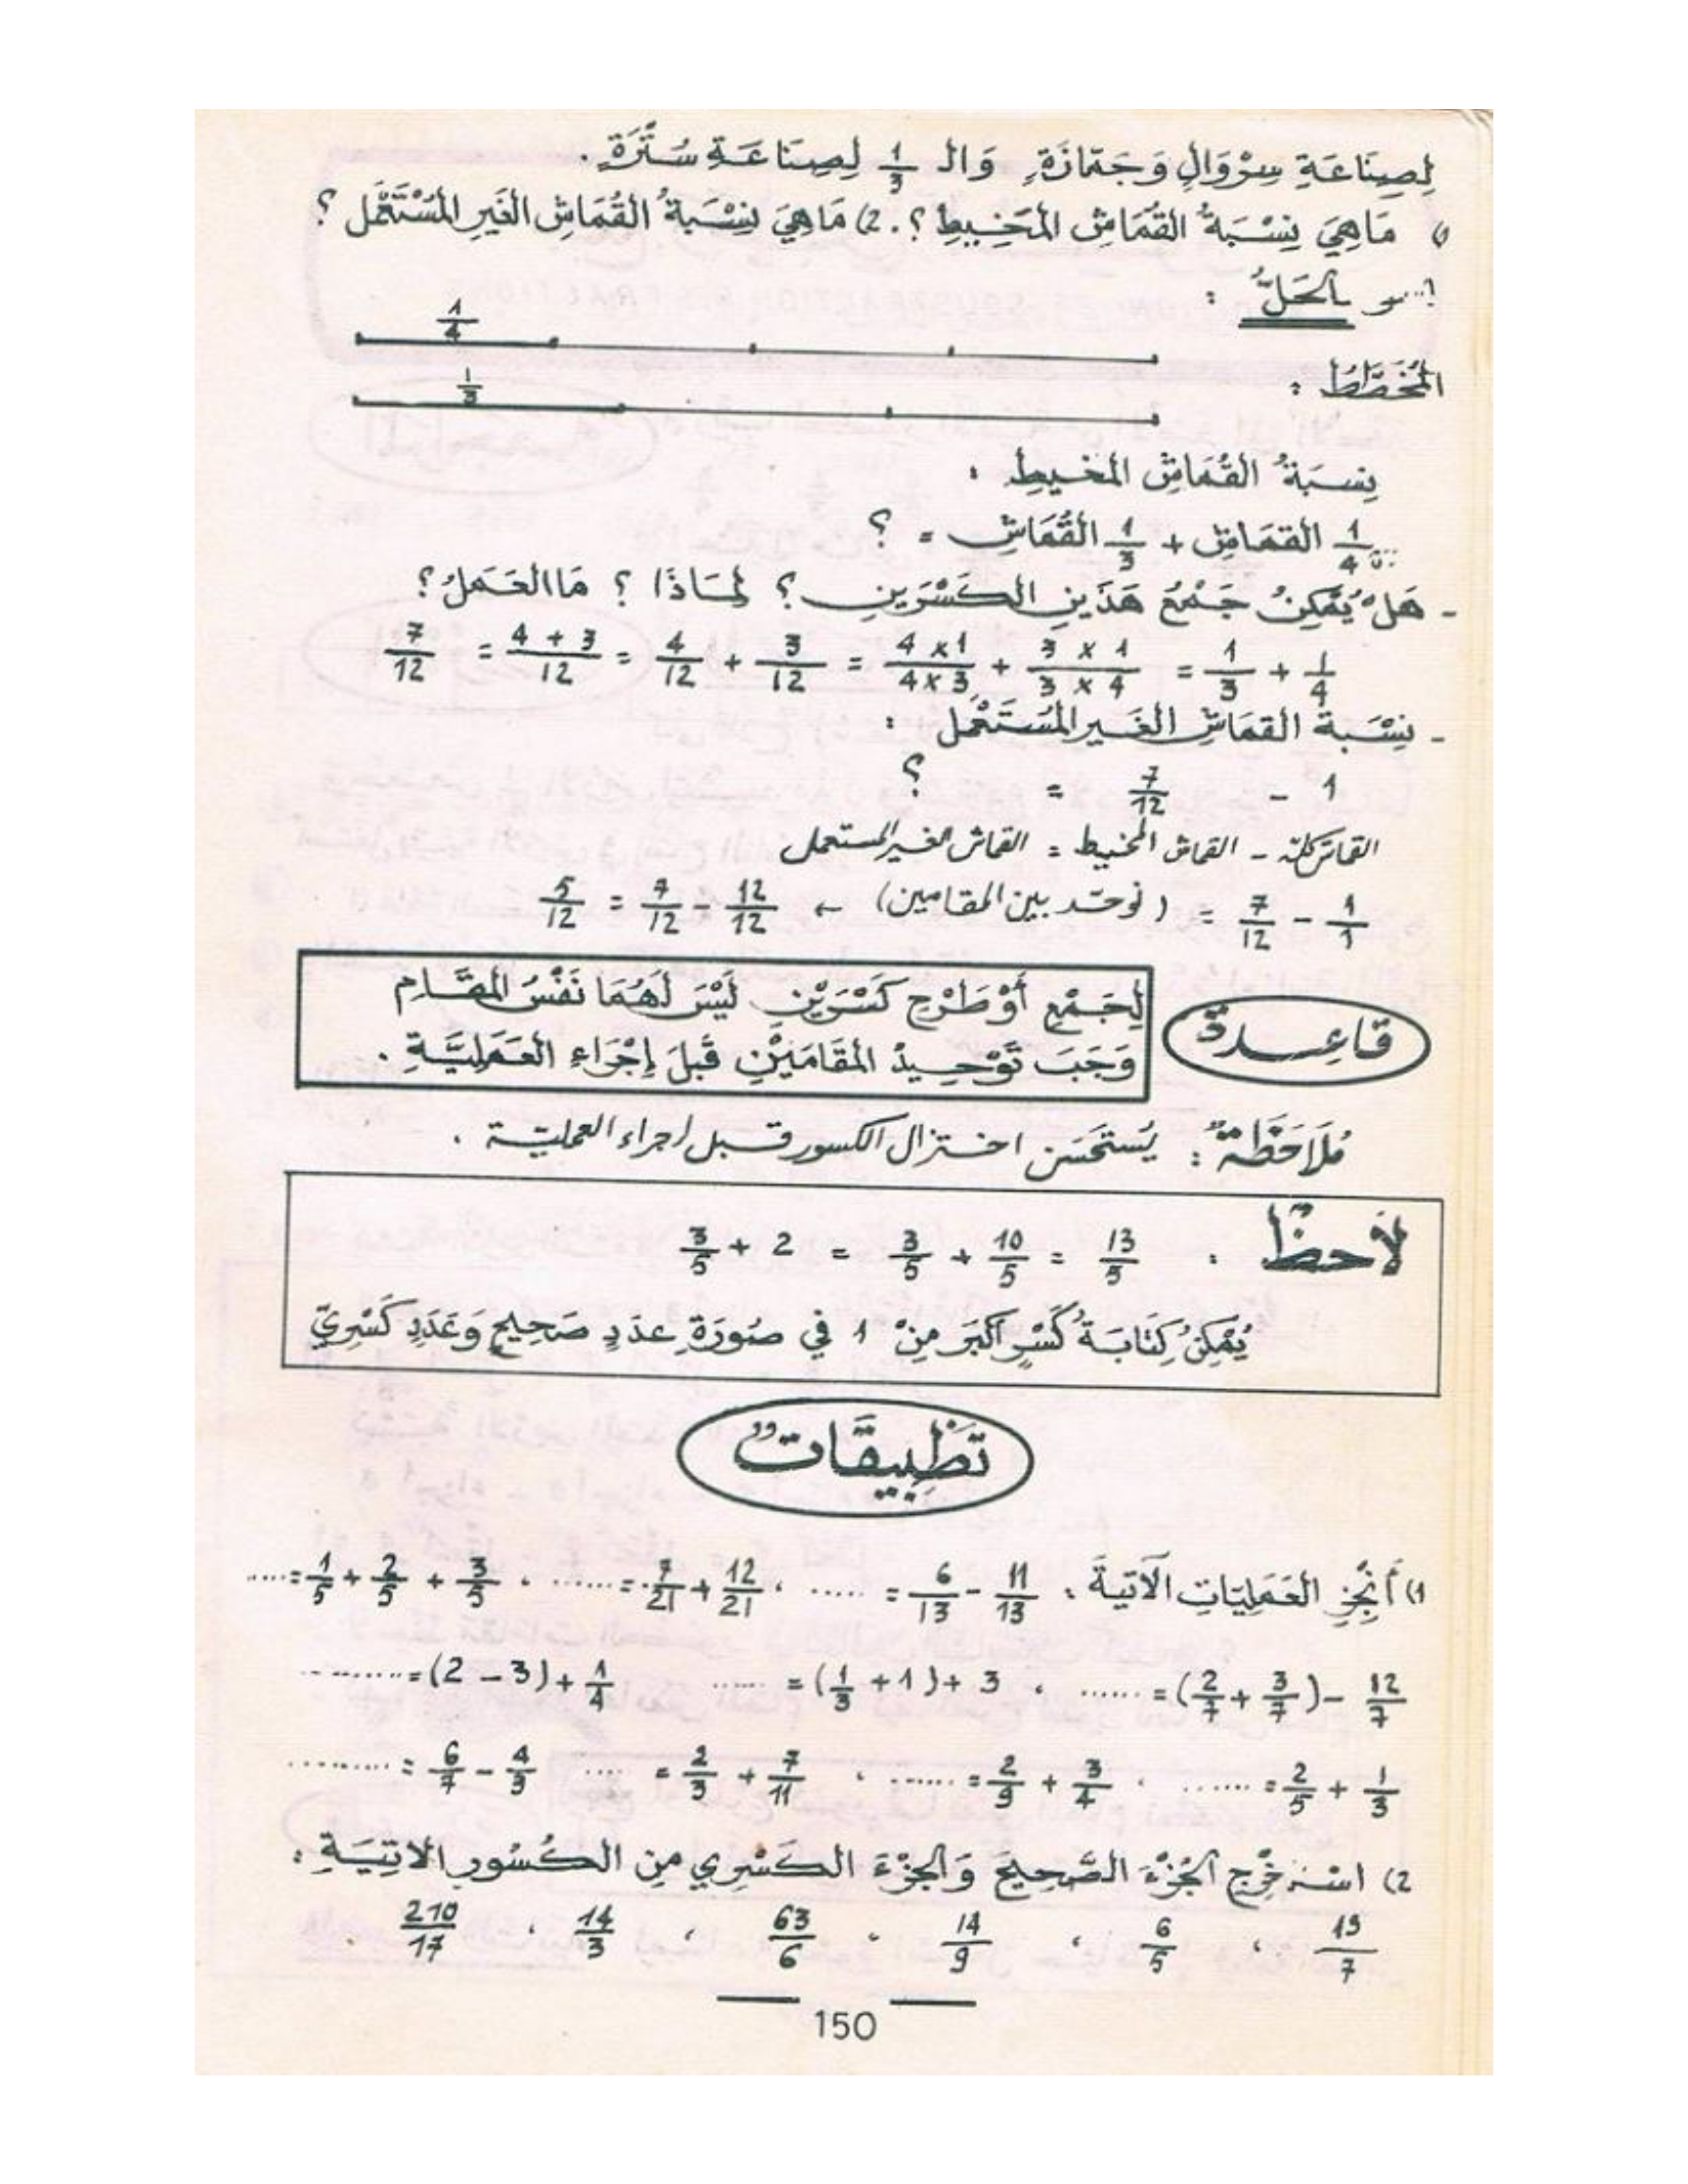 لِصِنَاعَةِ سِرْوَالٍ وَجَمَّازَةٍ وَالـ 1/3 لِصِنَاعَةِ سُتْرَةٍ .
1) مَا هِيَ نِسْبَةُ القُمَاشِ المَخِيطِ ؟ . 2) مَا هِيَ نِسْبَةُ القُمَاشِ الغَيْرِ المُسْتَعْمَلِ ؟
الحَلُّ :
1/4
المُخَطَّطُ :
1/3
نِسبَةُ القُمَاشِ المخيطِ :
1/4 القمَاشِ + 1/3 القُمَاشِ = ؟
- هَلْ يُمْكِنُ جَمْعُ هَذَينِ الكَسْرَينِ ؟ لِمَاذَا ؟ مَا العَمَلُ ؟
1/4 + 1/3 = (3 x 1)/(3 x 4) + (4 x 1)/(4 x 3) = 3/12 + 4/12 = (4 + 3)/12 = 7/12
- نِسْبَةُ القمَاشِ الغَيرِ المُسْتَعْمَلِ :
1 - 7/12 = ؟
القماش كلّه - القماش المخيط = القماش الغير المستعمل
1/1 - 7/12 = (نوحّد بين المقامين) ← 12/12 - 7/12 = 5/12
قَاعِدة
لِجَمْعِ أَوْ طَرْحِ كَسْرَيْنِ لَيْسَ لَهُمَا نَفْسُ المقَامِ
وَجَبَ تَوْحِيدُ المقَامَيْنِ قَبلَ إِجْرَاءِ العَمَلِيَّةِ .
مُلَاحَظَةٌ : يُستَحْسَن اختزال الكسور قبل إجراء العمليّة .
لَاحظْ : 13/5 = 10/5 + 3/5 = 2 + 3/5
يُمْكِنُ كِتَابَةُ كَسْرٍ أَكْبَرَ مِنْ 1 في صُورَةِ عدَدٍ صَحِيحٍ وَعَدَدٍ كَسْرِيٍّ
تَطْبِيقَاتٌ
1) أَنْجِزِ العَمَلِيَّاتِ الآتيةَ : 11/13 - 6/13 = ..... ، 12/21 + 7/21 = ...... ، 3/5 + 2/5 + 1/5 = .....
12/7 - (3/7 + 2/7) = ...... ، 3 + (1 + 1/3) = ...... 1/4 + (3 - 2) = ..........
1/3 + 2/5 = ....... ، 3/4 + 2/9 = ...... ، 7/11 + 2/3 = .... 4/3 - 6/7 = .........
2) اسْتَخْرِجِ الجُزْءَ الصَّحِيحَ وَالجُزْءَ الكَسْرِي مِنَ الكُسُورِ الاتِيَةِ :
19/7 ، 6/5 ، 14/9 ، 63/6 ، 14/3 ، 210/17 .
150